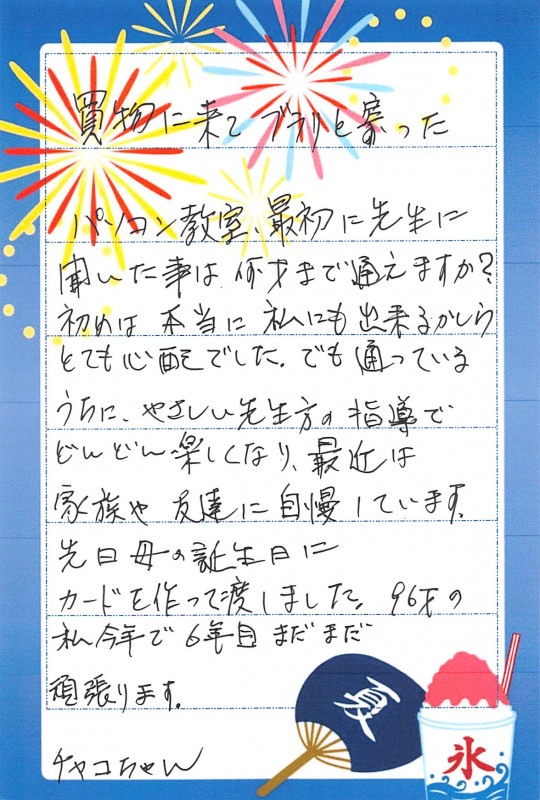 買物に来て ブラリと寄った
パソコン教室、最初に先生に
聞いた事は 何才まで通えますか?
初めは 本当に 私にも出来るかしら
とても心配でした。でも通っている
うちに、やさしい先生方の指導で
どんどん楽しくなり、最近は
家族や 友達に自慢しています。
先日母の誕生日に
カードを作って渡しました。96才の
私今年で6年目まだまだ
頑張ります。
チャコちゃん
夏
氷